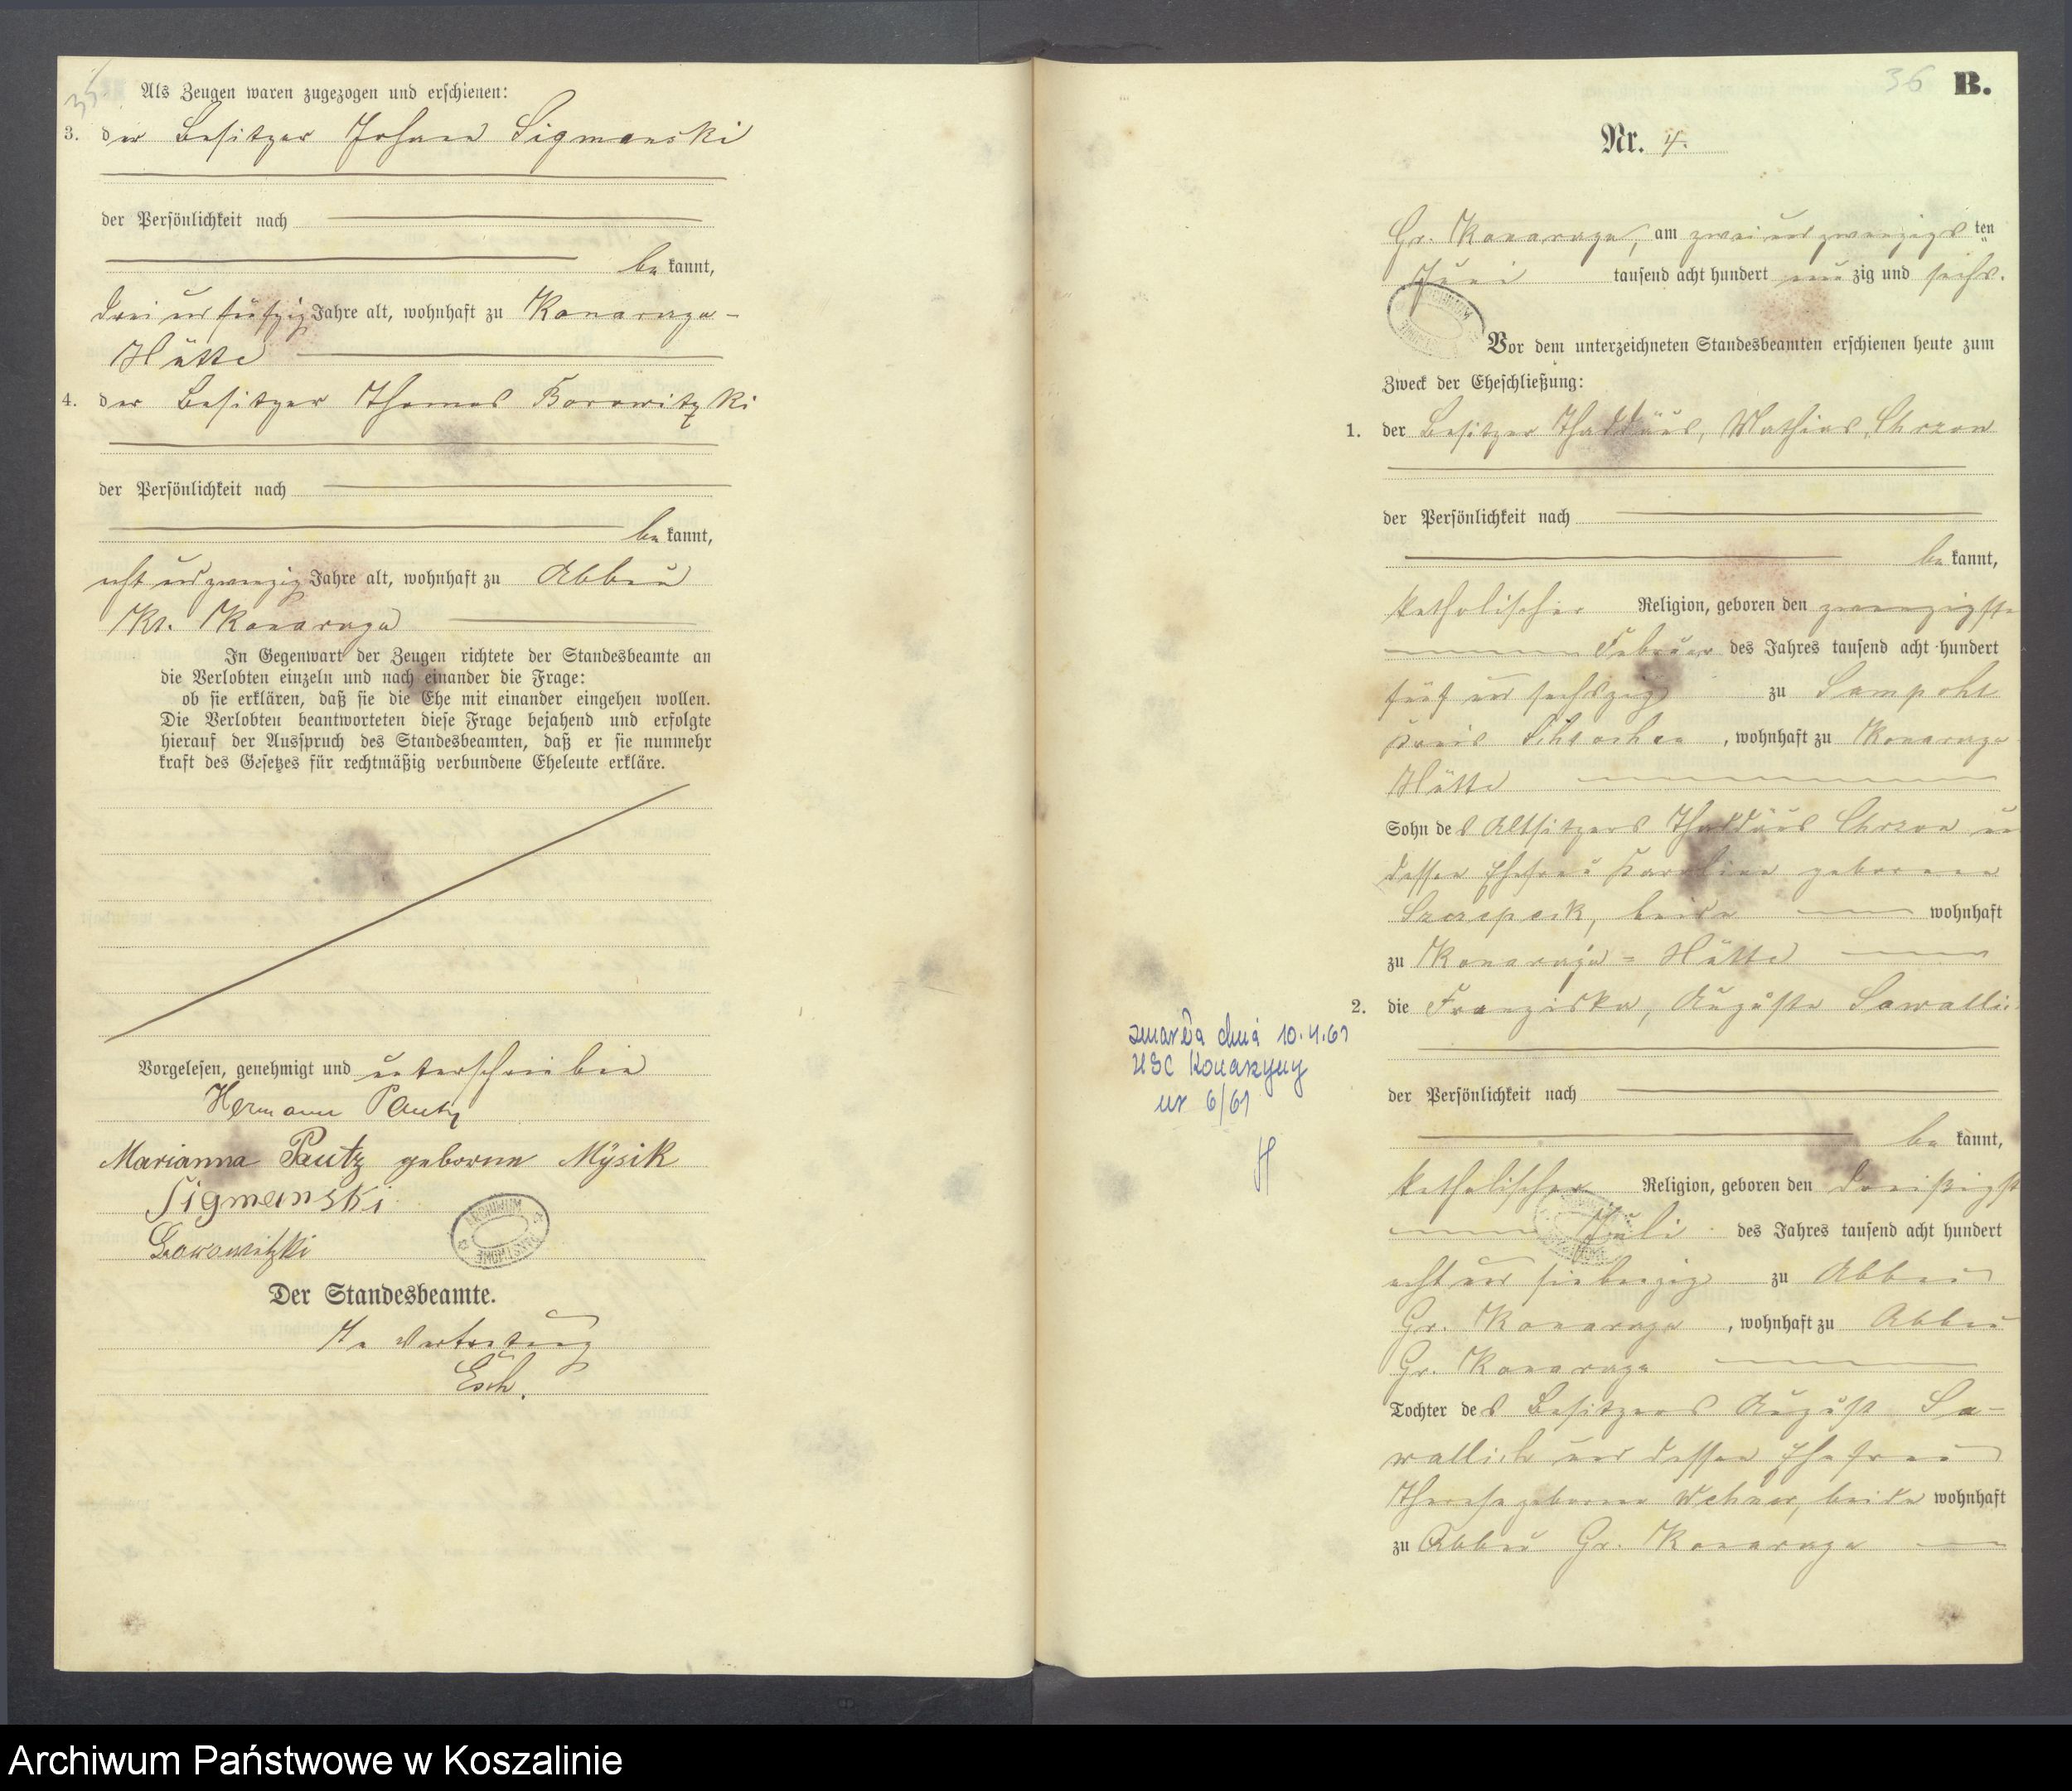 35
Als Zeugen waren zugezogen und erschienen:
3. der Besitzer Johann Sigmanski
der Persönlichkeit nach
be kannt,
drei und fünfzig Jahre alt, wohnhaft zu Konarczyn-
Hütte
4. der Besitzer Thomas Borowitzki
der Persönlichkeit nach
be kannt,
acht und zwanzig Jahre alt, wohnhaft zu Abbau
Kl. Konarczyn
In Gegenwart der Zeugen richtete der Standesbeamte an
die Verlobten einzeln und nach einander die Frage:
ob sie erklären, daß sie die Ehe mit einander eingehen wollen.
Die Verlobten beantworteten diese Frage bejahend und erfolgte
hierauf der Ausspruch des Standesbeamten, daß er sie nunmehr
kraft des Gesetzes für rechtmäßig verbundene Eheleute erkläre.
Vorgelesen, genehmigt und unterschrieben
Hermann Pautz
Marianna Pautz geborene Mÿsik
Sigmanski
Borowitzki
Der Standesbeamte.
In Vertretung
Esch.
36 B.
Nr. 4.
Gr. Konarczyn, am zwei und zwanzigs ten
Juni tausend acht hundert neun zig und sechs.
Vor dem unterzeichneten Standesbeamten erschienen heute zum
Zweck der Eheschließung:
1. der Besitzer Thaddäus, Mathias, Chrzon
der Persönlichkeit nach
be kannt,
katholischer Religion, geboren den zwanzigsten
Februar des Jahres tausend acht hundert
fünf und sechszig zu Sampohl
Kreis Schlochau, wohnhaft zu Konarczyn
Hütte
Sohn des Altsitzers Thaddäus Chrzon und
dessen Ehefrau Karoline geborenen
Szczepeik, beide wohnhaft
zu Konarczyn-Hütte
2. die Franziska, Auguste Sawallich
der Persönlichkeit nach
be kannt,
katholischer Religion, geboren den dreißigsten
Juli des Jahres tausend acht hundert
acht und siebenzig zu Abbau
Gr. Konarczyn, wohnhaft zu Abbau
Gr. Konarczyn
Tochter des Besitzers August Sa-
wallich und dessen Ehefrau
Therese geborene Wehner, beide wohnhaft
zu Abbau Gr. Konarczyn
zmarła dnia 10.4.61
USC Konarzyny
nr 6/61
Archiwum Państwowe w Koszalinie